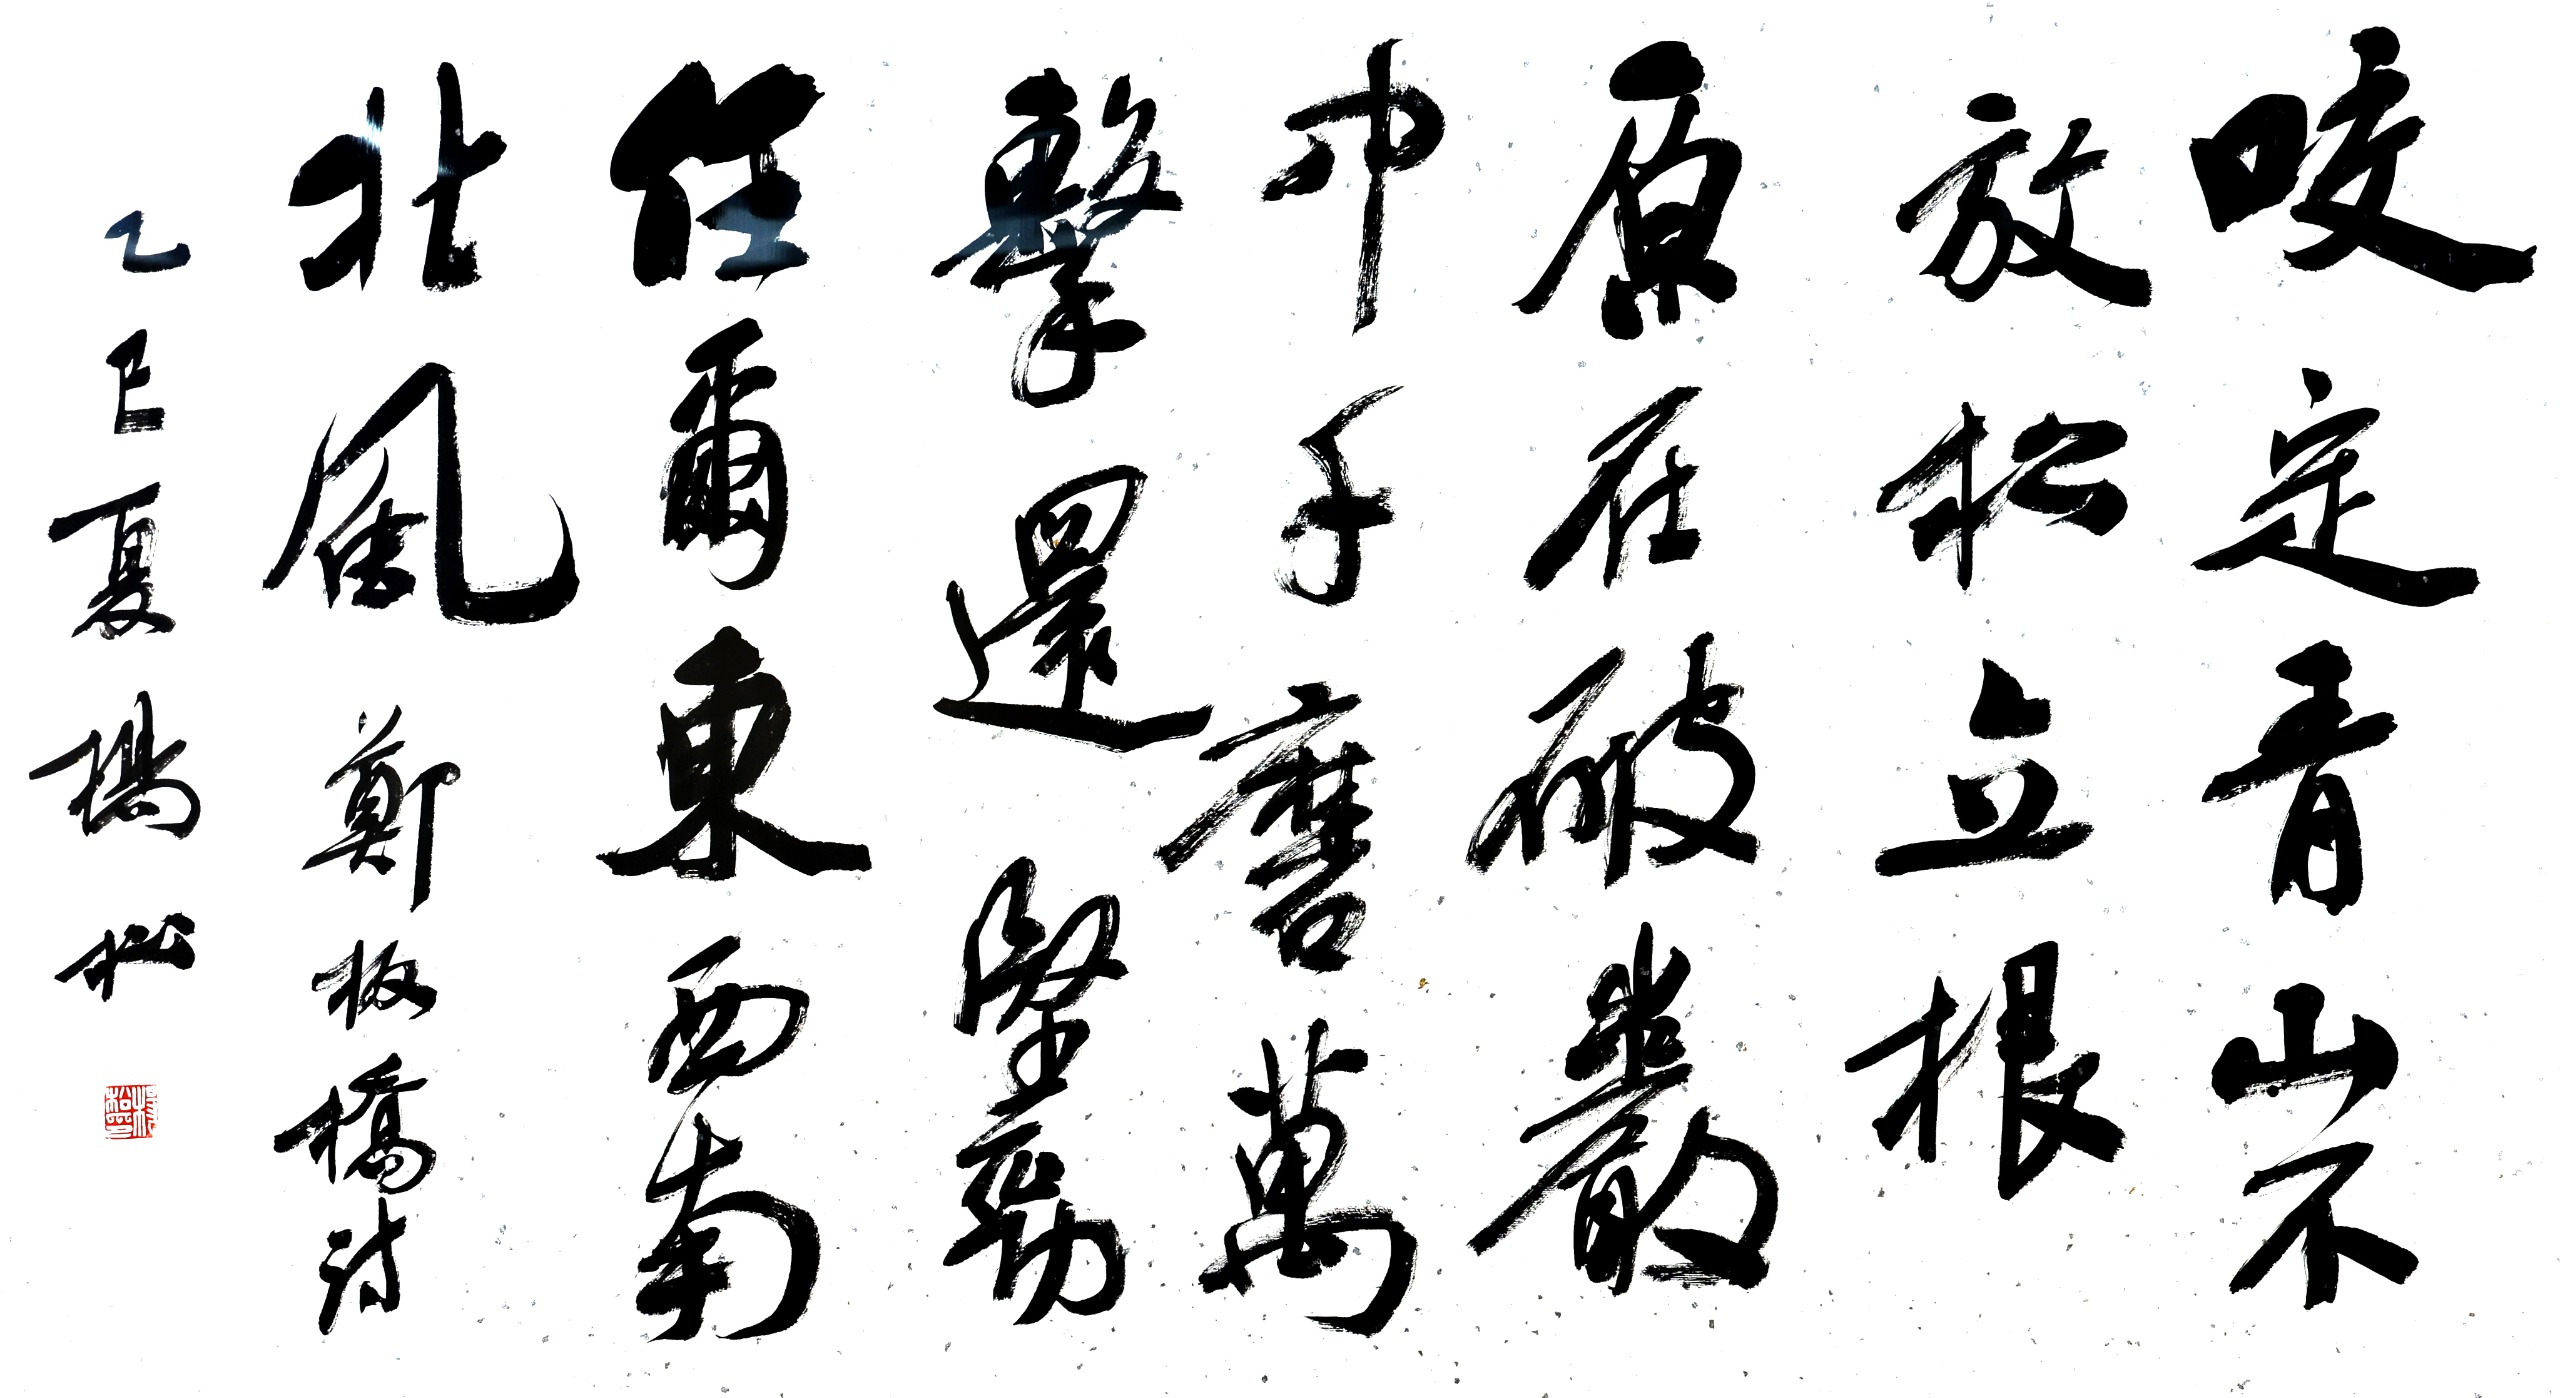 咬定青山不
放松立根
原在破巖
中千磨萬
擊還堅勁
任爾東西南
北風 鄭板橋诗
乙巳夏 楊松